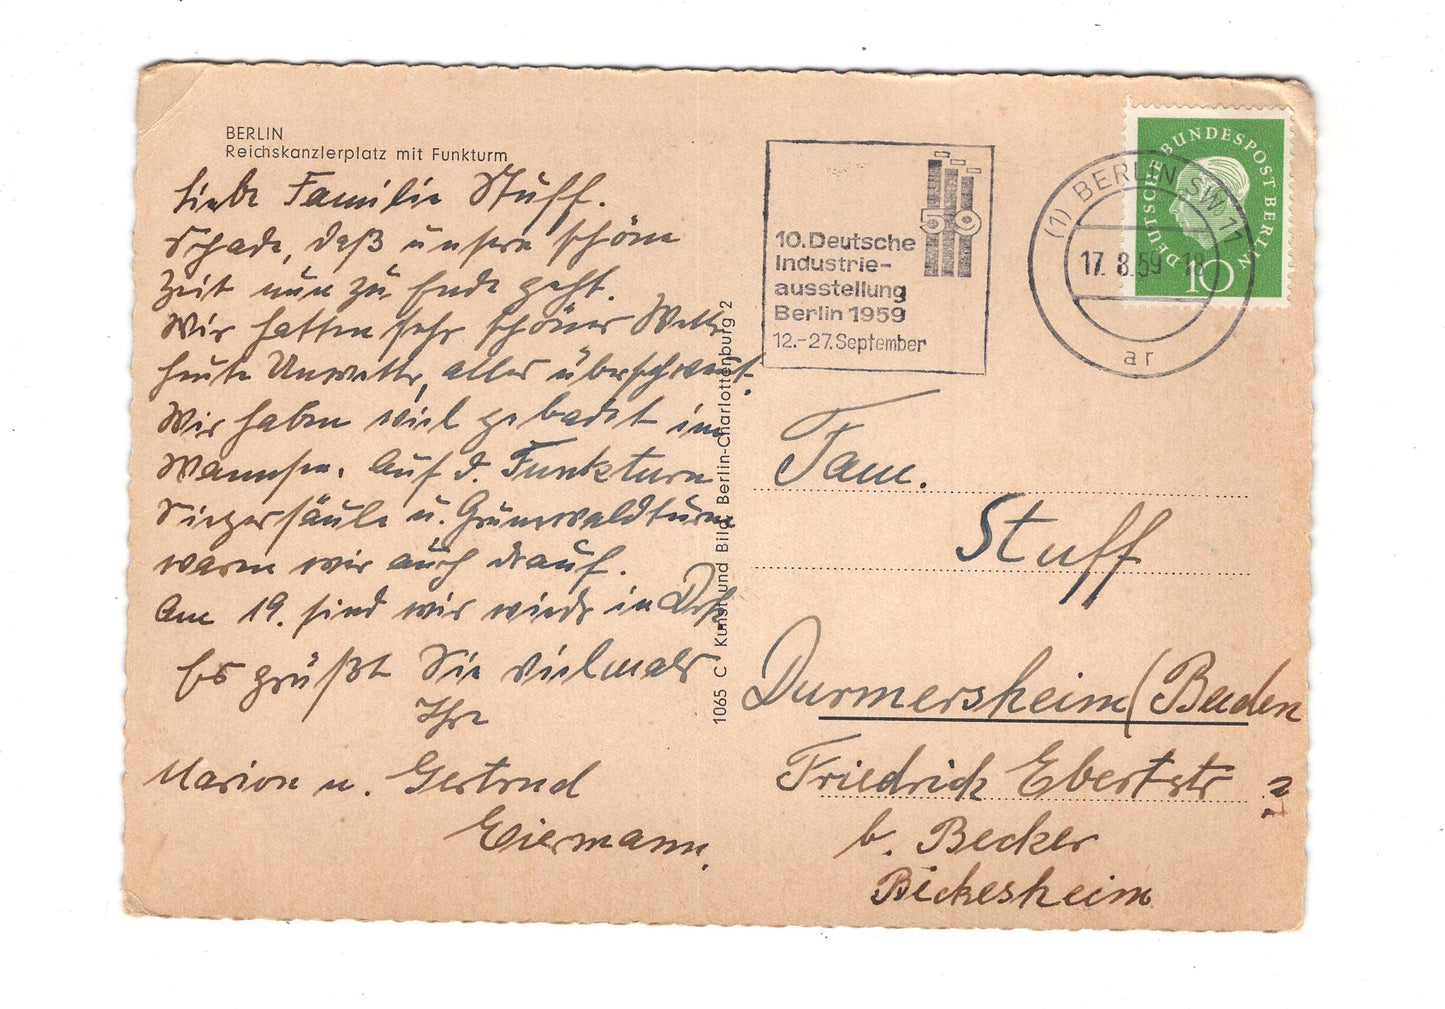 BERLIN
Reichskanzlerplatz mit Funkturm
Liebe Familie Stuff.
Schade, daß unsere schöne
Zeit nun zu Ende geht.
Wir hatten sehr schönes Wetter
heute Unwetter, alles überschwemt.
Wir haben viel gebadet im
Wannsee. Auf d. Funkturm
Siegessäule u. Grunewaldturm
waren wir auch drauf.
Am 19. sind wir wieder in
Es grüßt Sie vielmals
Ihre
Marion u. Gertrud
Eiermann.
1065 C Kunst und Bild, Berlin-Charlottenburg 2
10. Deutsche
Industrie-
ausstellung
Berlin 1959
12.-27. September
59
(1) BERLIN SW 11
17. 8. 59 - 18
ar
DEUTSCHE BUNDESPOST BERLIN
10
Fam.
Stuff
Durmersheim (Baden
Friedrich Ebertstr ?
b. Becker
Bickesheim